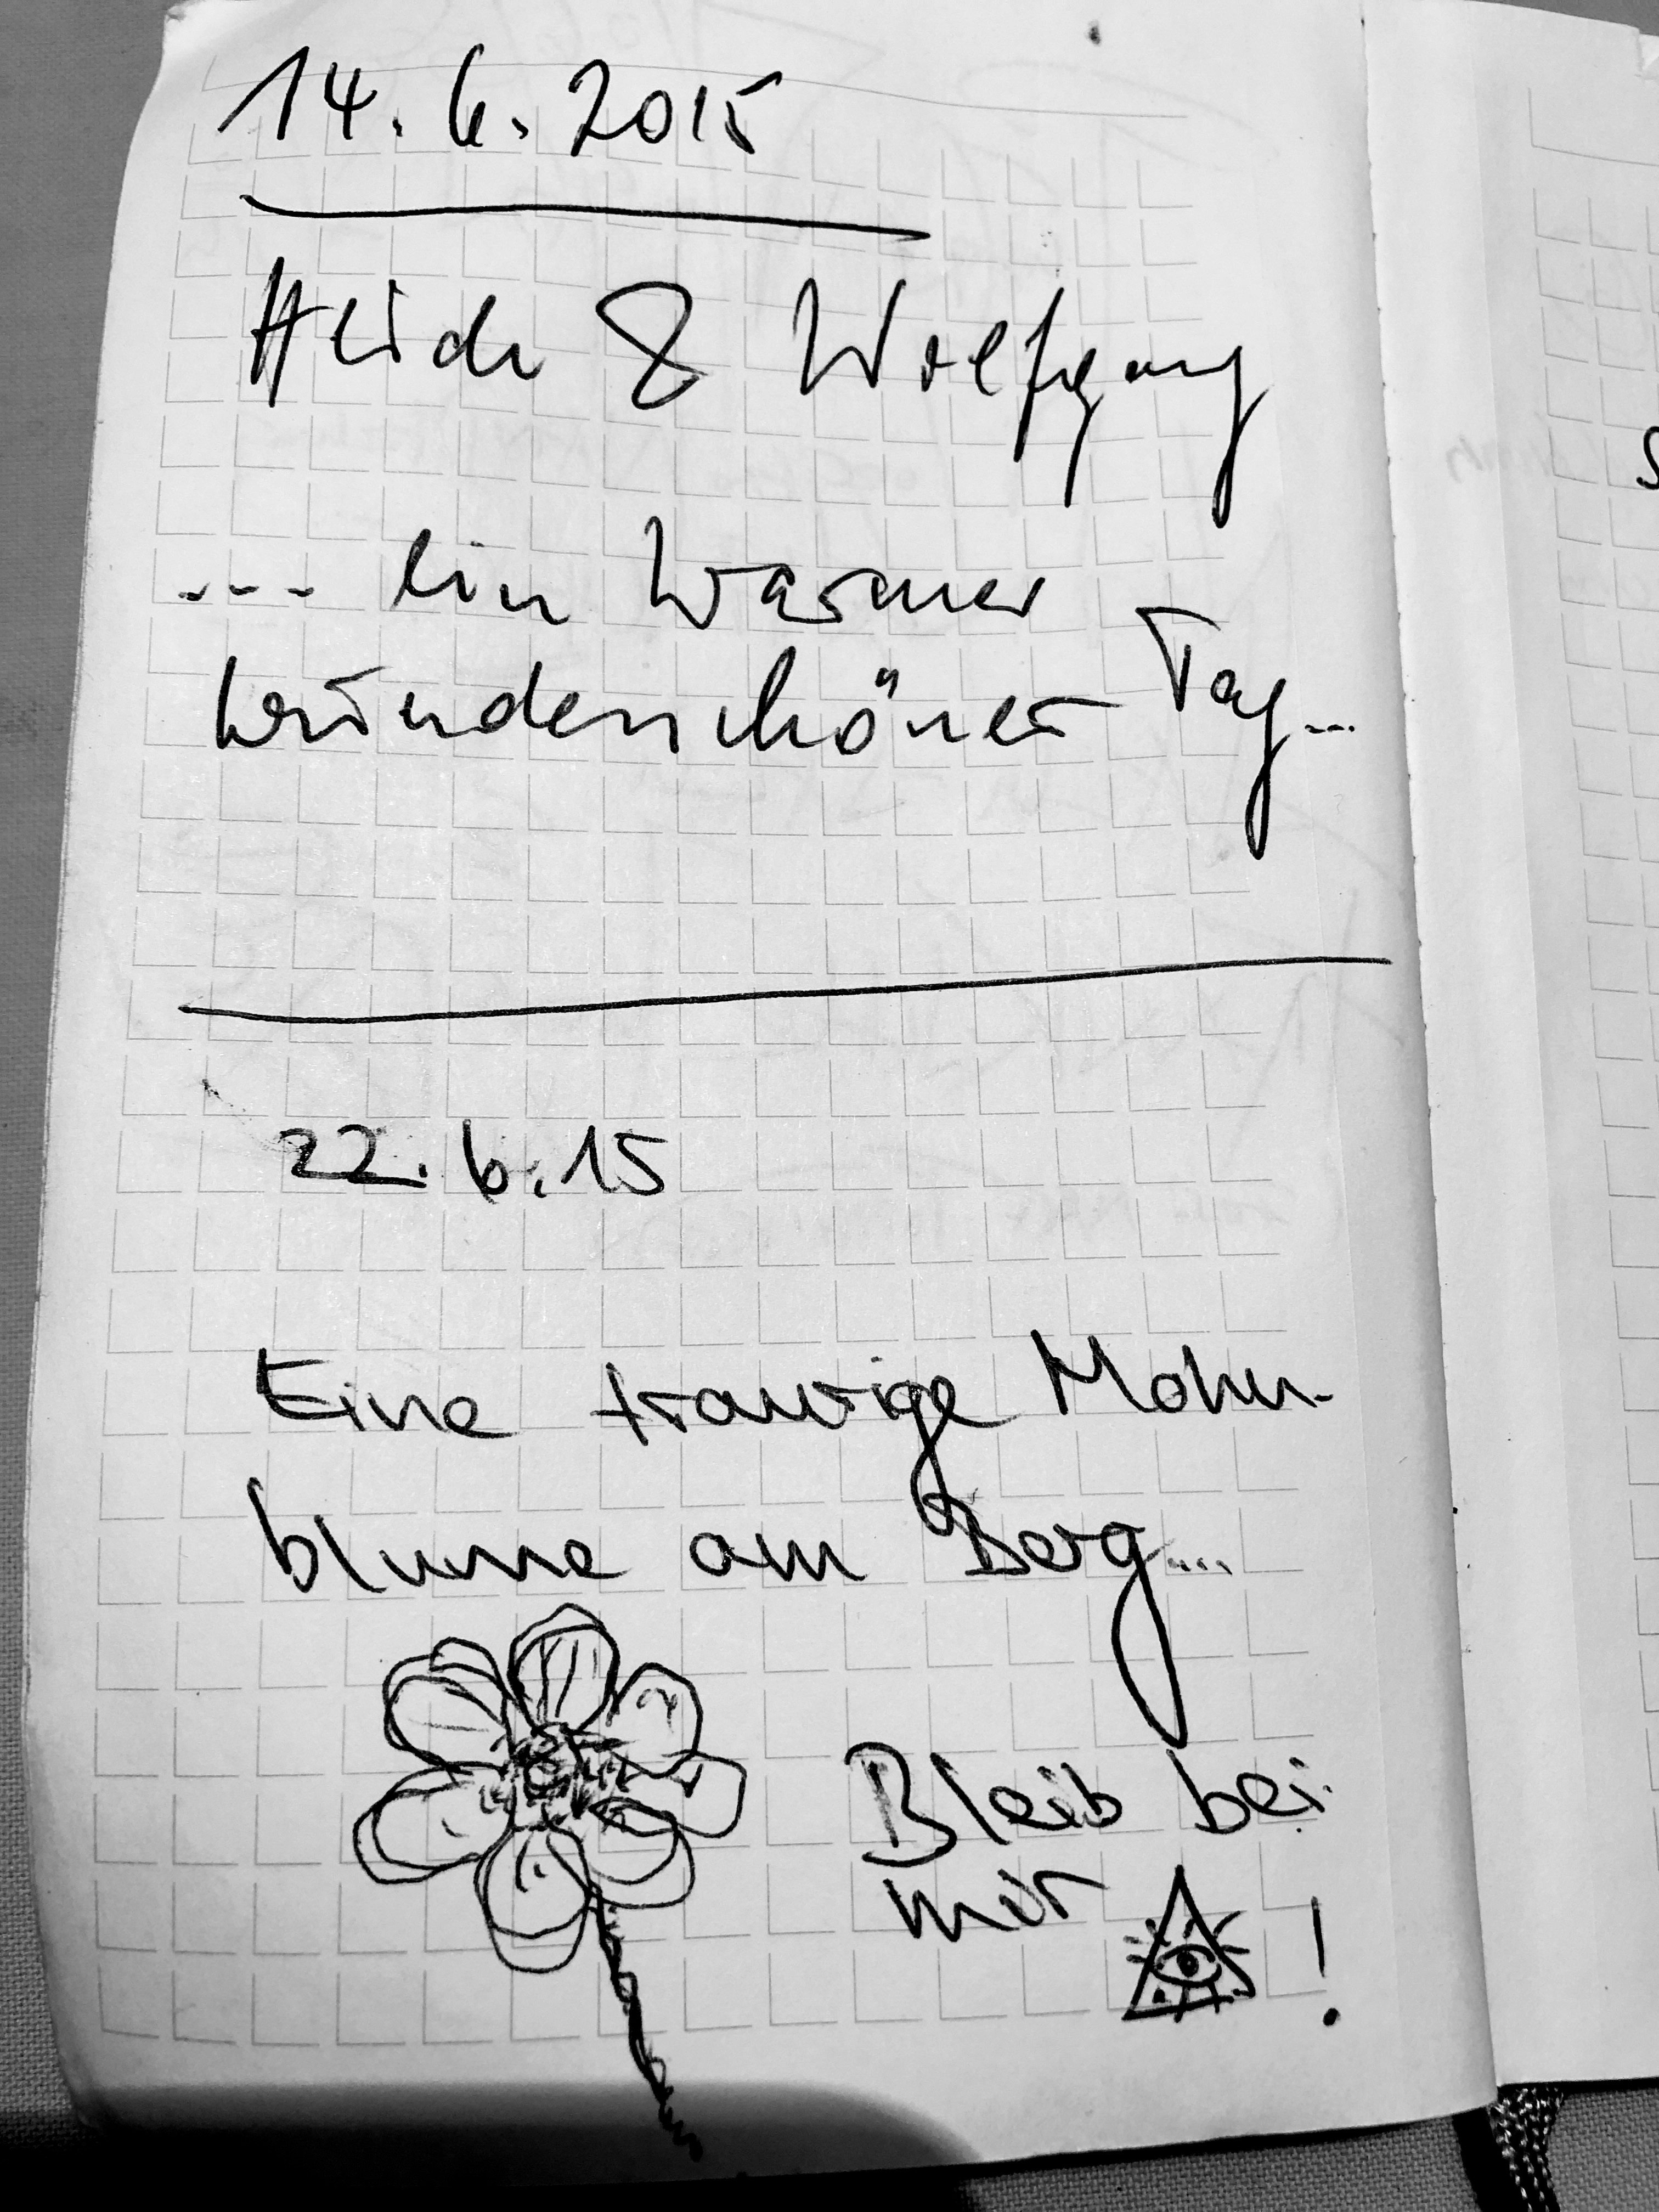 14. 6. 2015
Heidi & Wolfgang
... ein warmer
wunderschöner Tag...
22. 6. 15
Eine traurige Mohn-
blume am Berg....
Bleib bei
mir !